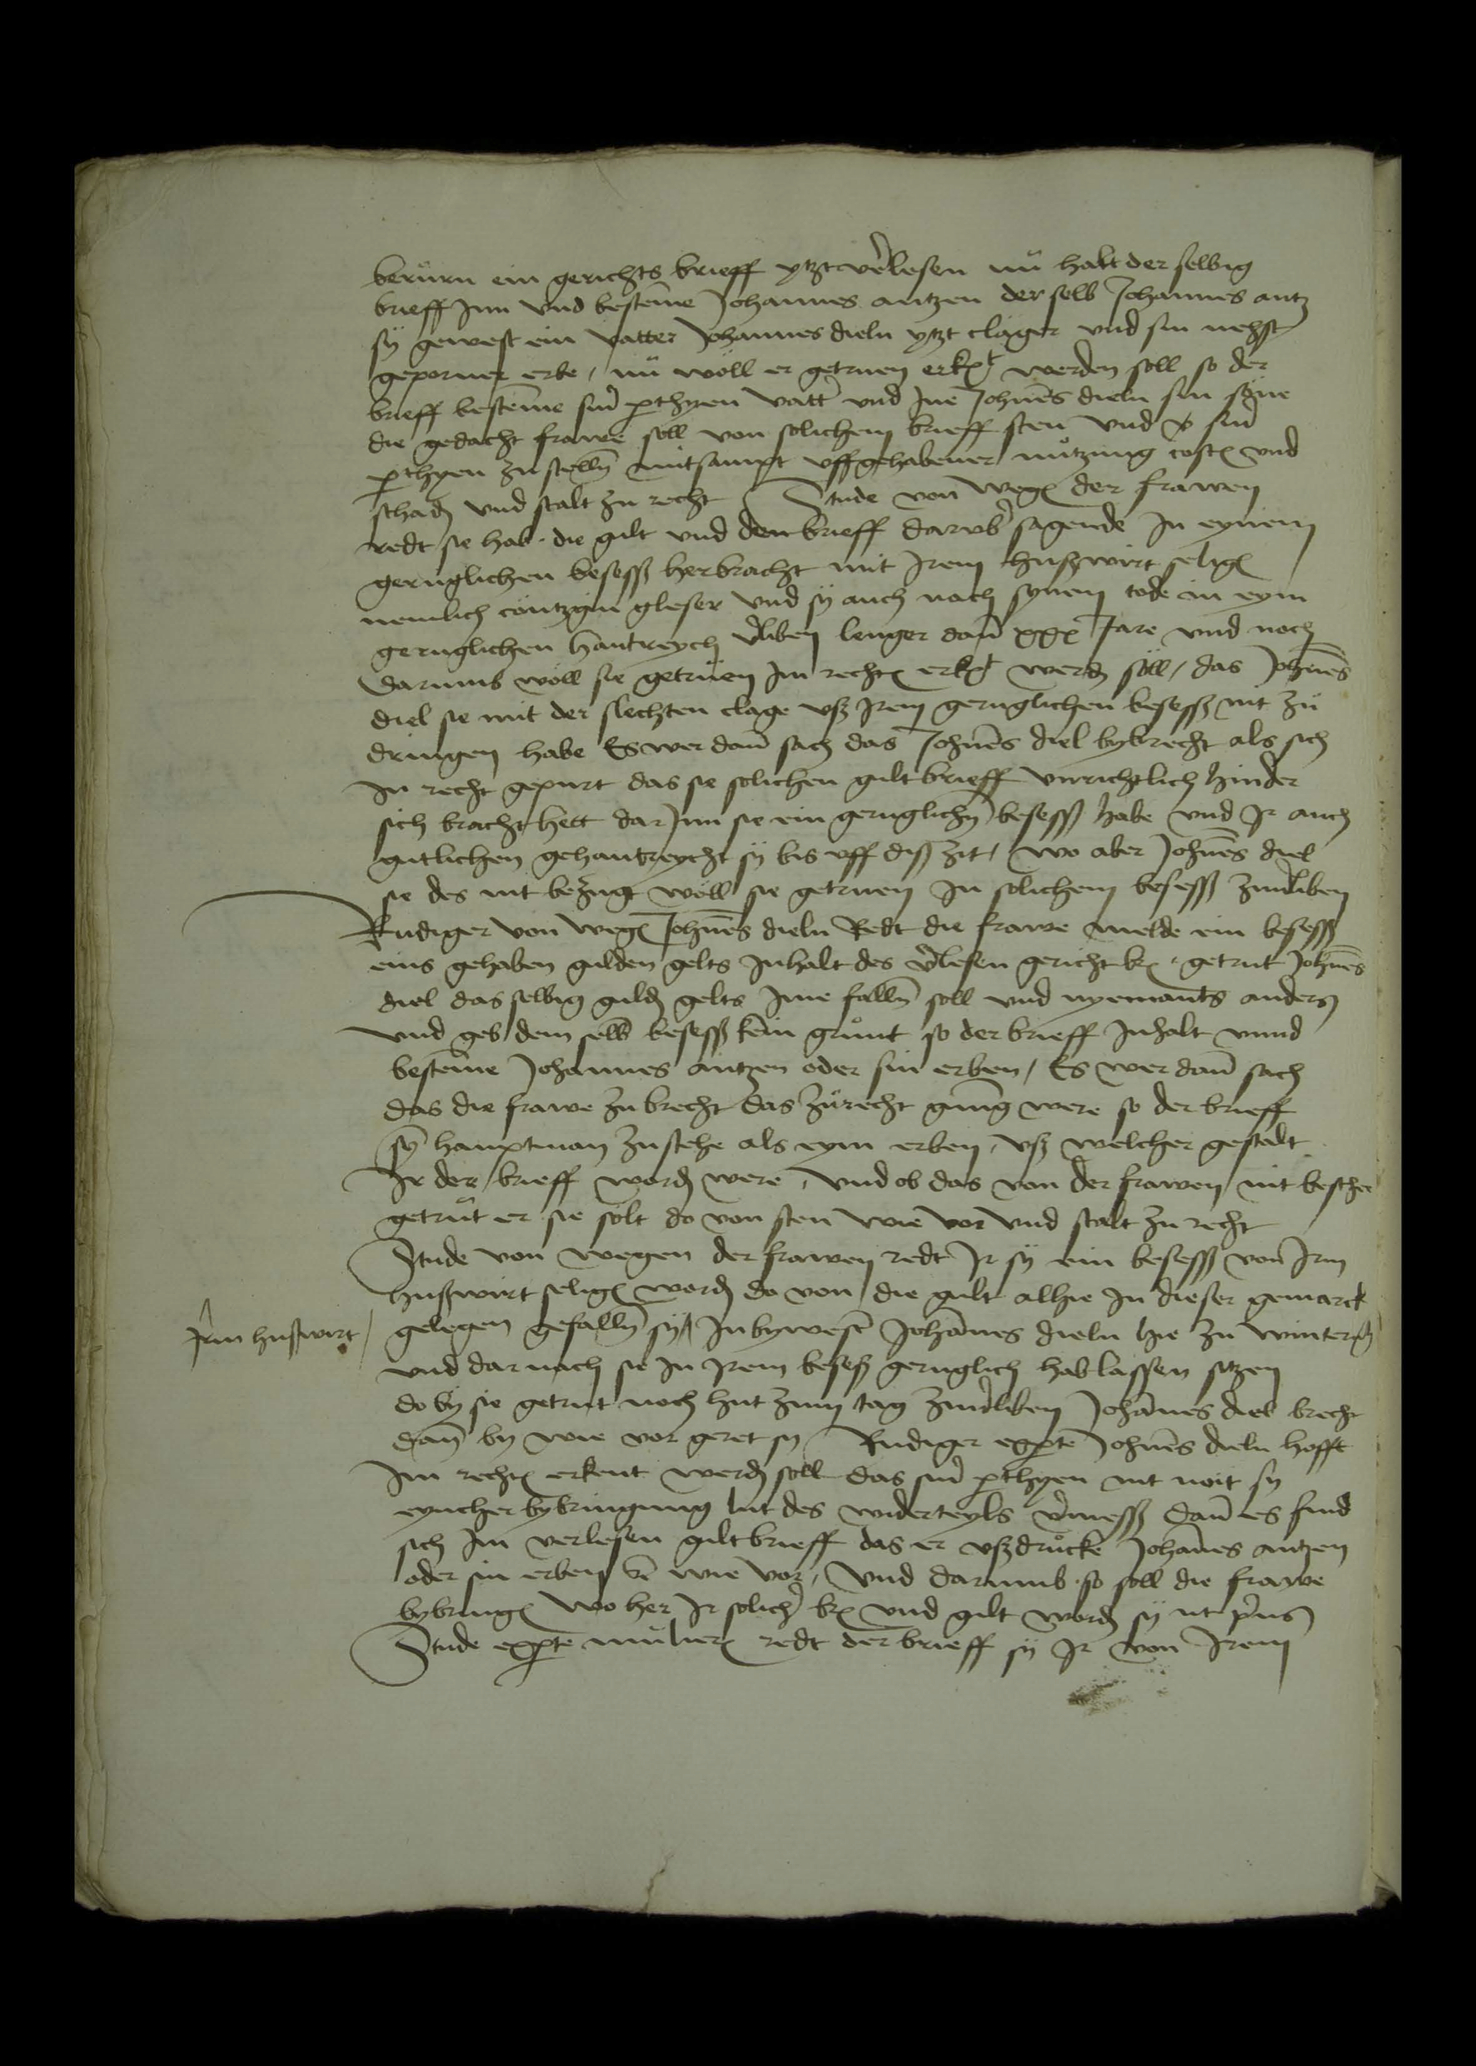 berurn ein gerichts brieff ytzt v̾lesen nů halt der selbig
brieff Inn vnd besteme Johannes antzen der selb Johannes antz
sÿ gewest ein vatter Johannes dieln ytzt clager vnd sin nehst
geporner erbe / nů wöll er getruen erkēt werden soll so der
brieff bestēme sin̄ p̱thyen vatt̾ vnd Ine Johnēs dieln sin sone
die gedacht frawe soll von solichem brieff sten vnd sin̄
p̱thyen zu stelln̄ mitsampt vffgehabener nůtzung cost vnd
schadn̄ vnd stalt zu recht / Stude von weg der frawen
redt sie hab die gilt vnd den brieff darvb̾ sagende In eynem
geruglichen besess herbracht mit Irem hußwirt selig
nemlich contzgin gleser vnd sÿ auch nach synem tode in eym
geruglichen hantreych v̾liben lenger dan̄ xxx Jare vnd noch
darumb wöll sie getruen Im recht erkēt werdn̄ söll / das Johnēs
diel sie mit der slechten clage vß Irem geruglichen besess nit zů
dringen habe Es wer dan̄ sach das Johnēs diel bybrecht als sich
In recht gepurt das sie solichen gult brieff vnrichtlich hinder
sich bracht hett dar Inn sie ein geruglichn̄ besess habe vnd Ir auch
gutlichen gehantreycht sÿ bis vff diß zit / wo aber Johnēs diel
sie des nit bezugt wöll sie getruen In solichem besess zuu̾liben
Rudiger von weg Johnēs dieln Redt die frawe melde ein besess
eins gehaben gulden gelts Inhalt des v̾lesen gericht br / getrut Johnēs
diel das selbig guldn̄ gelts Ime falln̄ soll vnd nyemants anders
vnd geb dem selb̄ besess kein grůnt so der brieff Inhalt vnnd
bestēme Johannes antzen oder sin erben / Es wer dan̄ sach
das die frawe zu brecht das zůrecht gnūg were so der brieff
sÿ hauptman zustehe als eym erben / vß welcher gestalt
Ir der brieff wordn̄ were / vnd ob das von der frawen nit beschee
getrůt er sie solt do von sten wie vor vnd stalt zu recht
Stude von wegen der frawen redt Ir sÿ ein besess von Irm
hußwirt selig wordn̄ do von die gult alhie In dieser gemarck
Irm hußwirt / gelegen gefalln̄ sÿ In bywest Johānes dieln hie zu wintern̄
vnd dar nach sie In Irem beseß geruglich hab lassen sitzen
do by sie getrut noch hut zum tag zuu̾liben Johānes diel brecht
dan̄ by wie vor geret sy Rudiger exp̱te Johnēs dieln hofft
Im recht erkent werdn̄ soll das sin̄ p̱thyen nit noit sy
eyncher bybringung lut des widerteyls v̾mess dan̄ es find
sich Im verlesen giltbrieff das er vßdrůcke Johānes antzen
oder sin erben wie vor / vnd darumb so soll die frawe
bybring wo her Ir solich̾ br vnd gilt wordn̄ sÿ ut p̾us
Stude exp̱te mulier redt der brieff sÿ Ir von Irem